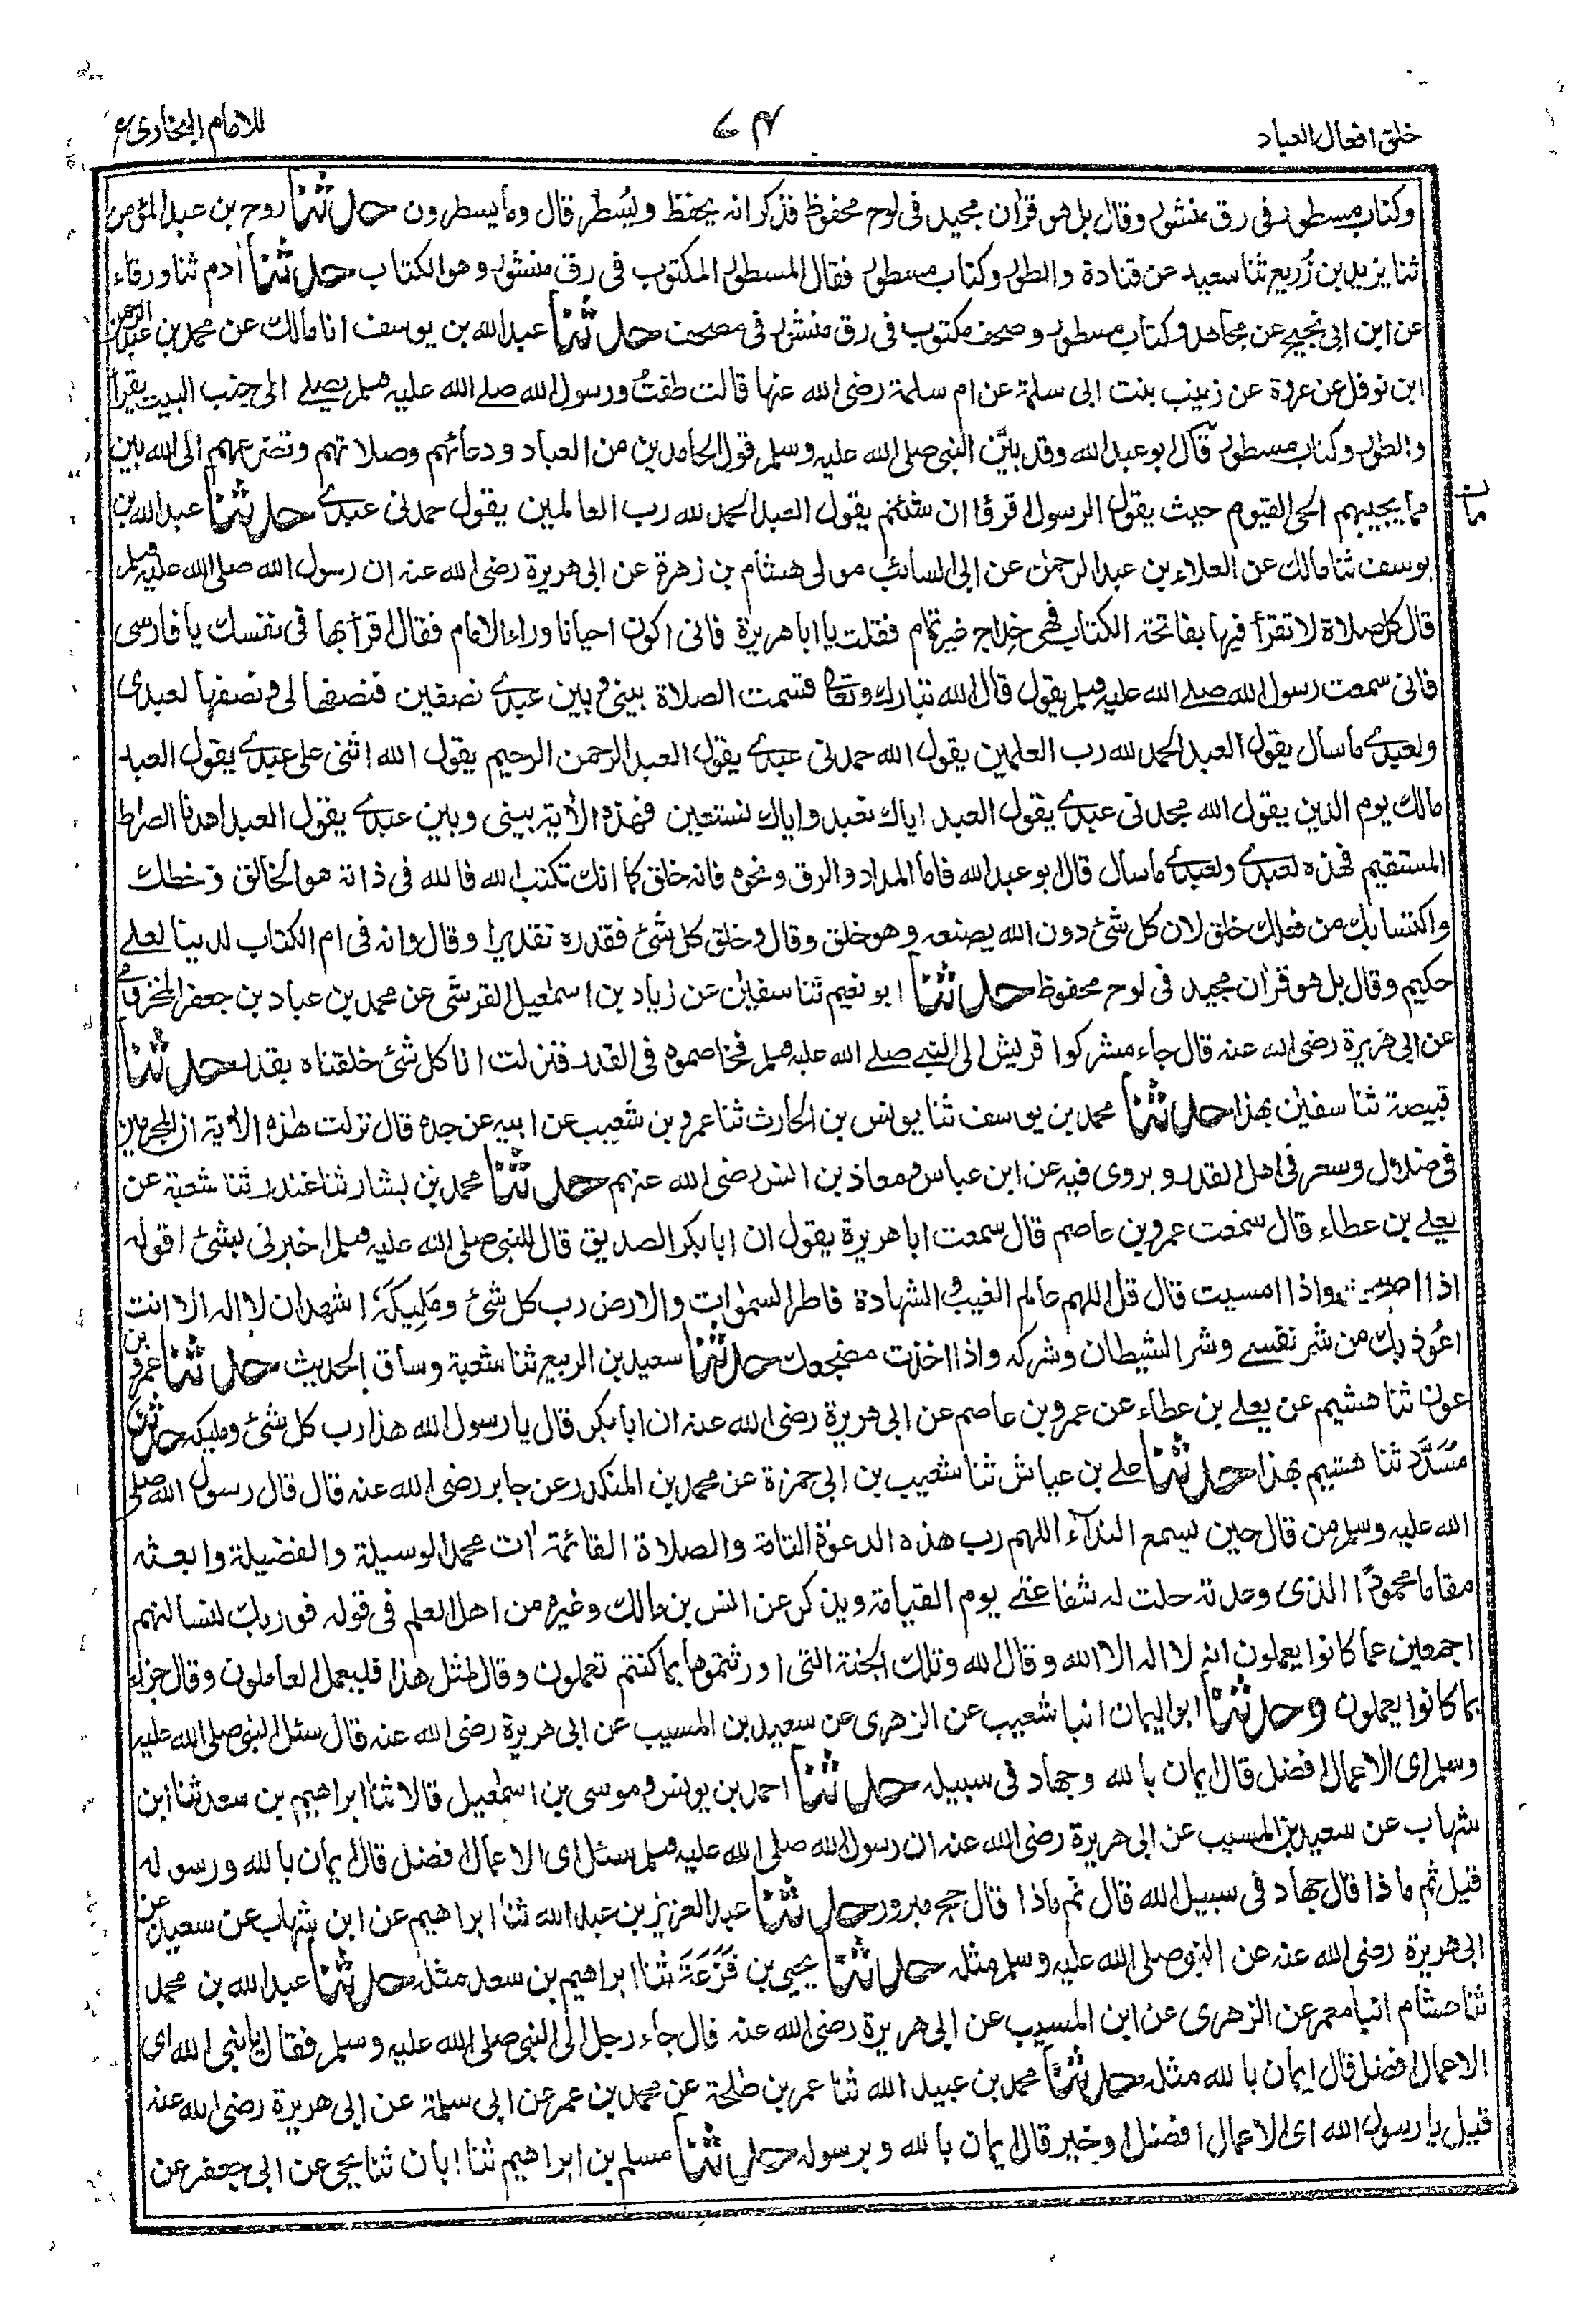 خلق افعال العباد
٧٤
للامام البخاری
وکتاب مسطور فی رق منشور وقال بل هو قرآن مجید فی لوح محفوظ فذکر انه یحفظ ویُسْطَر قال وما یسطرون حدثنا روح بن عبد المؤمن
ثنا یزید بن زُریع ثنا سعید عن قتادة والطور وکتاب مسطور فقال المسطور المکتوب فی رق منشور وهو الکتاب حدثنا آدم ثنا ورقاء
عن ابن ابی نجیح عن مجاهد وکتاب مسطور وصحف مکتوب فی رق منشور فی مصحف حدثنا عبد الله بن یوسف انا مالك عن محمد بن عبد الرحمن
ابن نوفل عن عروة عن زینب بنت ابی سلمة عن ام سلمة رضی الله عنها قالت طفتُ ورسول الله صلے الله علیه وسلم یصلے الی جنب البیت یقرأ
والطور وکتاب مسطور قال ابو عبد الله وقد بیّن النبی صلی الله علیه وسلم قول الحامدین من العباد ودعائهم وصلاتهم وتضرعهم الی الله بین
مما یجیبهم الحی القیوم حیث یقول الرسول اقرؤا ان شئتم یقول العبد الحمد لله رب العالمین یقول حمدنی عبدے حدثنا عبد الله بن
یوسف ثنا مالك عن العلاء بن عبد الرحمن عن ابی السائب مولی هشام بن زهرة عن ابی هریرة رضی الله عنه ان رسول الله صلی الله علیه وسلم
قال کل صلاة لا تقرأ فیها بفاتحة الکتاب فهی خِداج غیر تمام فقلت یا ابا هریرة فانی اکون احیانا وراء الامام فقال اقرأ بها فی نفسك یا فارسی
فانی سمعت رسول الله صلے الله علیه وسلم یقول قال الله تبارك وتعالی قسمت الصلاة بینی وبین عبدے نصفین فنصفها لی ونصفها لعبدی
ولعبدے ما سأل یقول العبد الحمد لله رب العلمین یقول الله حمدنی عبدے یقول العبد الرحمن الرحیم یقول الله اثنی علی عبدے یقول العبد
مالك یوم الدین یقول الله مجدنی عبدے یقول العبد ایاك نعبد وایاك نستعین فهذه الآیة بینی وبین عبدے یقول العبد اهدنا الصراط
المستقیم فهذه لعبدے ولعبدے ما سأل قال ابو عبد الله فاما المداد والرق ونحوه فانه خلق کما انك تکتب الله فالله فی ذاته هو الخالق وخطك
واکتسابك من فعلك خلق لان کل شیٔ دون الله یصنعه وهو خلق وقال وخلق کل شیٔ فقدره تقدیرا وقال وانه فی ام الکتاب لدینا لعلے
حکیم وقال بل هو قرآن مجید فی لوح محفوظ حدثنا ابو نعیم ثنا سفیان عن زیاد بن اسمعیل القرشی عن محمد بن عباد بن جعفر المخزومی
عن ابی هریرة رضی الله عنه قال جاء مشرکوا قریش الی النبی صلے الله علیه وسلم فخاصموه فی القدر فنزلت انا کل شیٔ خلقناه بقدر حدثنا
قبیصة ثنا سفیان بهذا حدثنا محمد بن یوسف ثنا یونس بن الحارث ثنا عمرو بن شعیب عن ابیه عن جده قال نزلت هذه الآیة ان المجرمین
فی ضلال وسعر فی اهل القدر ویروی فیه عن ابن عباس ومعاذ بن انس رضی الله عنهم حدثنا محمد بن بشار ثنا غندر ثنا شعبة عن
یعلے بن عطاء قال سمعت عمرو بن عاصم قال سمعت ابا هریرة یقول ان ابا بکر الصدیق قال للنبی صلی الله علیه وسلم اخبرنی بشیٔ اقوله
اذا اصبحت واذا امسیت قال قل اللهم عالم الغیب والشهادة فاطر السموات والارض رب کل شیٔ وملیکه اشهد ان لا اله الا انت
اعوذ بك من شر نفسے وشر الشیطان وشرکه واذا اخذت مضجعك حدثنا سعید بن الربیع ثنا شعبة وساق الحدیث حدثنا عمرو بن
عون ثنا هشیم عن یعلے بن عطاء عن عمرو بن عاصم عن ابی هریرة رضی الله عنه ان ابا بکر قال یا رسول الله هذا رب کل شیٔ وملیکه حدثنا
مُسَدَّد ثنا هشیم بهذا حدثنا علے بن عیاش ثنا شعیب بن ابی حمزة عن محمد بن المنکدر عن جابر رضی الله عنه قال قال رسول الله صلی
الله علیه وسلم من قال حین یسمع النداء اللهم رب هذه الدعوة التامة والصلاة القائمة آت محمدا الوسیلة والفضیلة وابعثه
مقاما محمودًا الذی وعدته حلت له شفاعتے یوم القیامة ویذکر عن انس بن مالك وغیره من اهل العلم فی قوله فوربك لنسألنهم
اجمعین عما کانوا یعملون انه لا اله الا الله وقال الله وتلك الجنة التی اورثتموها بما کنتم تعملون وقال لمثل هذا فلیعمل العاملون وقال جزاء
بما کانوا یعملون وحدثنا ابو الیمان انبا شعیب عن الزهری عن سعید بن المسیب عن ابی هریرة رضی الله عنه قال سئل النبی صلی الله علیه
وسلم ای الاعمال افضل قال ایمان بالله وجهاد فی سبیله حدثنا احمد بن یونس وموسی بن اسمعیل قالا ثنا ابراهیم بن سعد ثنا ابن
شهاب عن سعید بن المسیب عن ابی هریرة رضی الله عنه ان رسول الله صلی الله علیه وسلم سئل ای الاعمال افضل قال ایمان بالله ورسوله
قیل ثم ماذا قال جهاد فی سبیل الله قال ثم ماذا قال حج مبرور حدثنا عبد العزیز بن عبد الله ثنا ابراهیم عن ابن شهاب عن سعید عن
ابی هریرة رضی الله عنه عن النبی صلی الله علیه وسلم مثله حدثنا یحیی بن قَزَعَة ثنا ابراهیم بن سعد مثله حدثنا عبد الله بن محمد
ثنا هشام انبا معمر عن الزهری عن ابن المسیب عن ابی هریرة رضی الله عنه قال جاء رجل الی النبی صلی الله علیه وسلم فقال یا نبی الله ای
الاعمال افضل قال ایمان بالله مثله حدثنا محمد بن عبید الله ثنا عمر بن طلحة عن محمد بن عمر عن ابی سلمة عن ابی هریرة رضی الله عنه
قیل یا رسول الله ای الاعمال افضل او خیر قال ایمان بالله وبرسوله حدثنا مسلم بن ابراهیم ثنا ابان ثنا یحی عن ابی جعفر عن